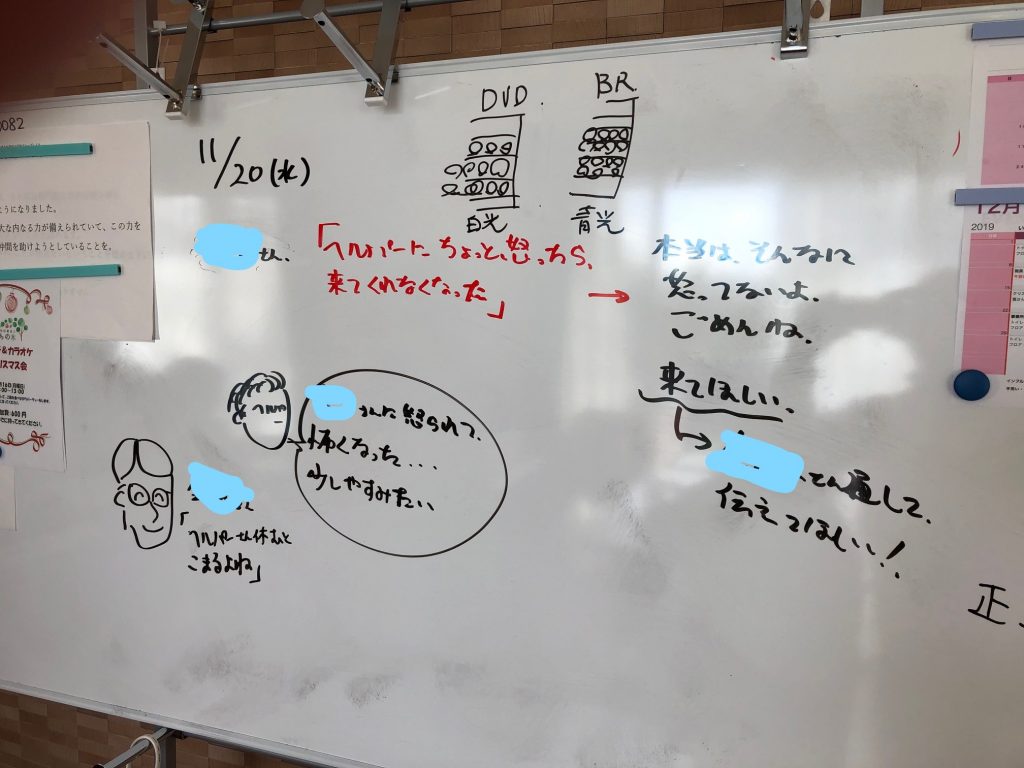 0082
うになりました。
大な内なる力が備えられていて、この力を
仲間を助けようとしていることを。
&カラオケ
リスマス会
11/20(水)
DVD
白光
BR
青光
さん.
「ヘルパーに ちょっと怒ったら、
来てくれなくなった」
→
本当は、そんなに
怒ってないよ.
ごめんね.
来てほしい.
さん通して.
伝えてほしい!
ヘルパ
さんに怒られて.
怖くなった...
少しやすみたい
「
ヘルパーさん休むと
こまるよね」
正
12月
2019